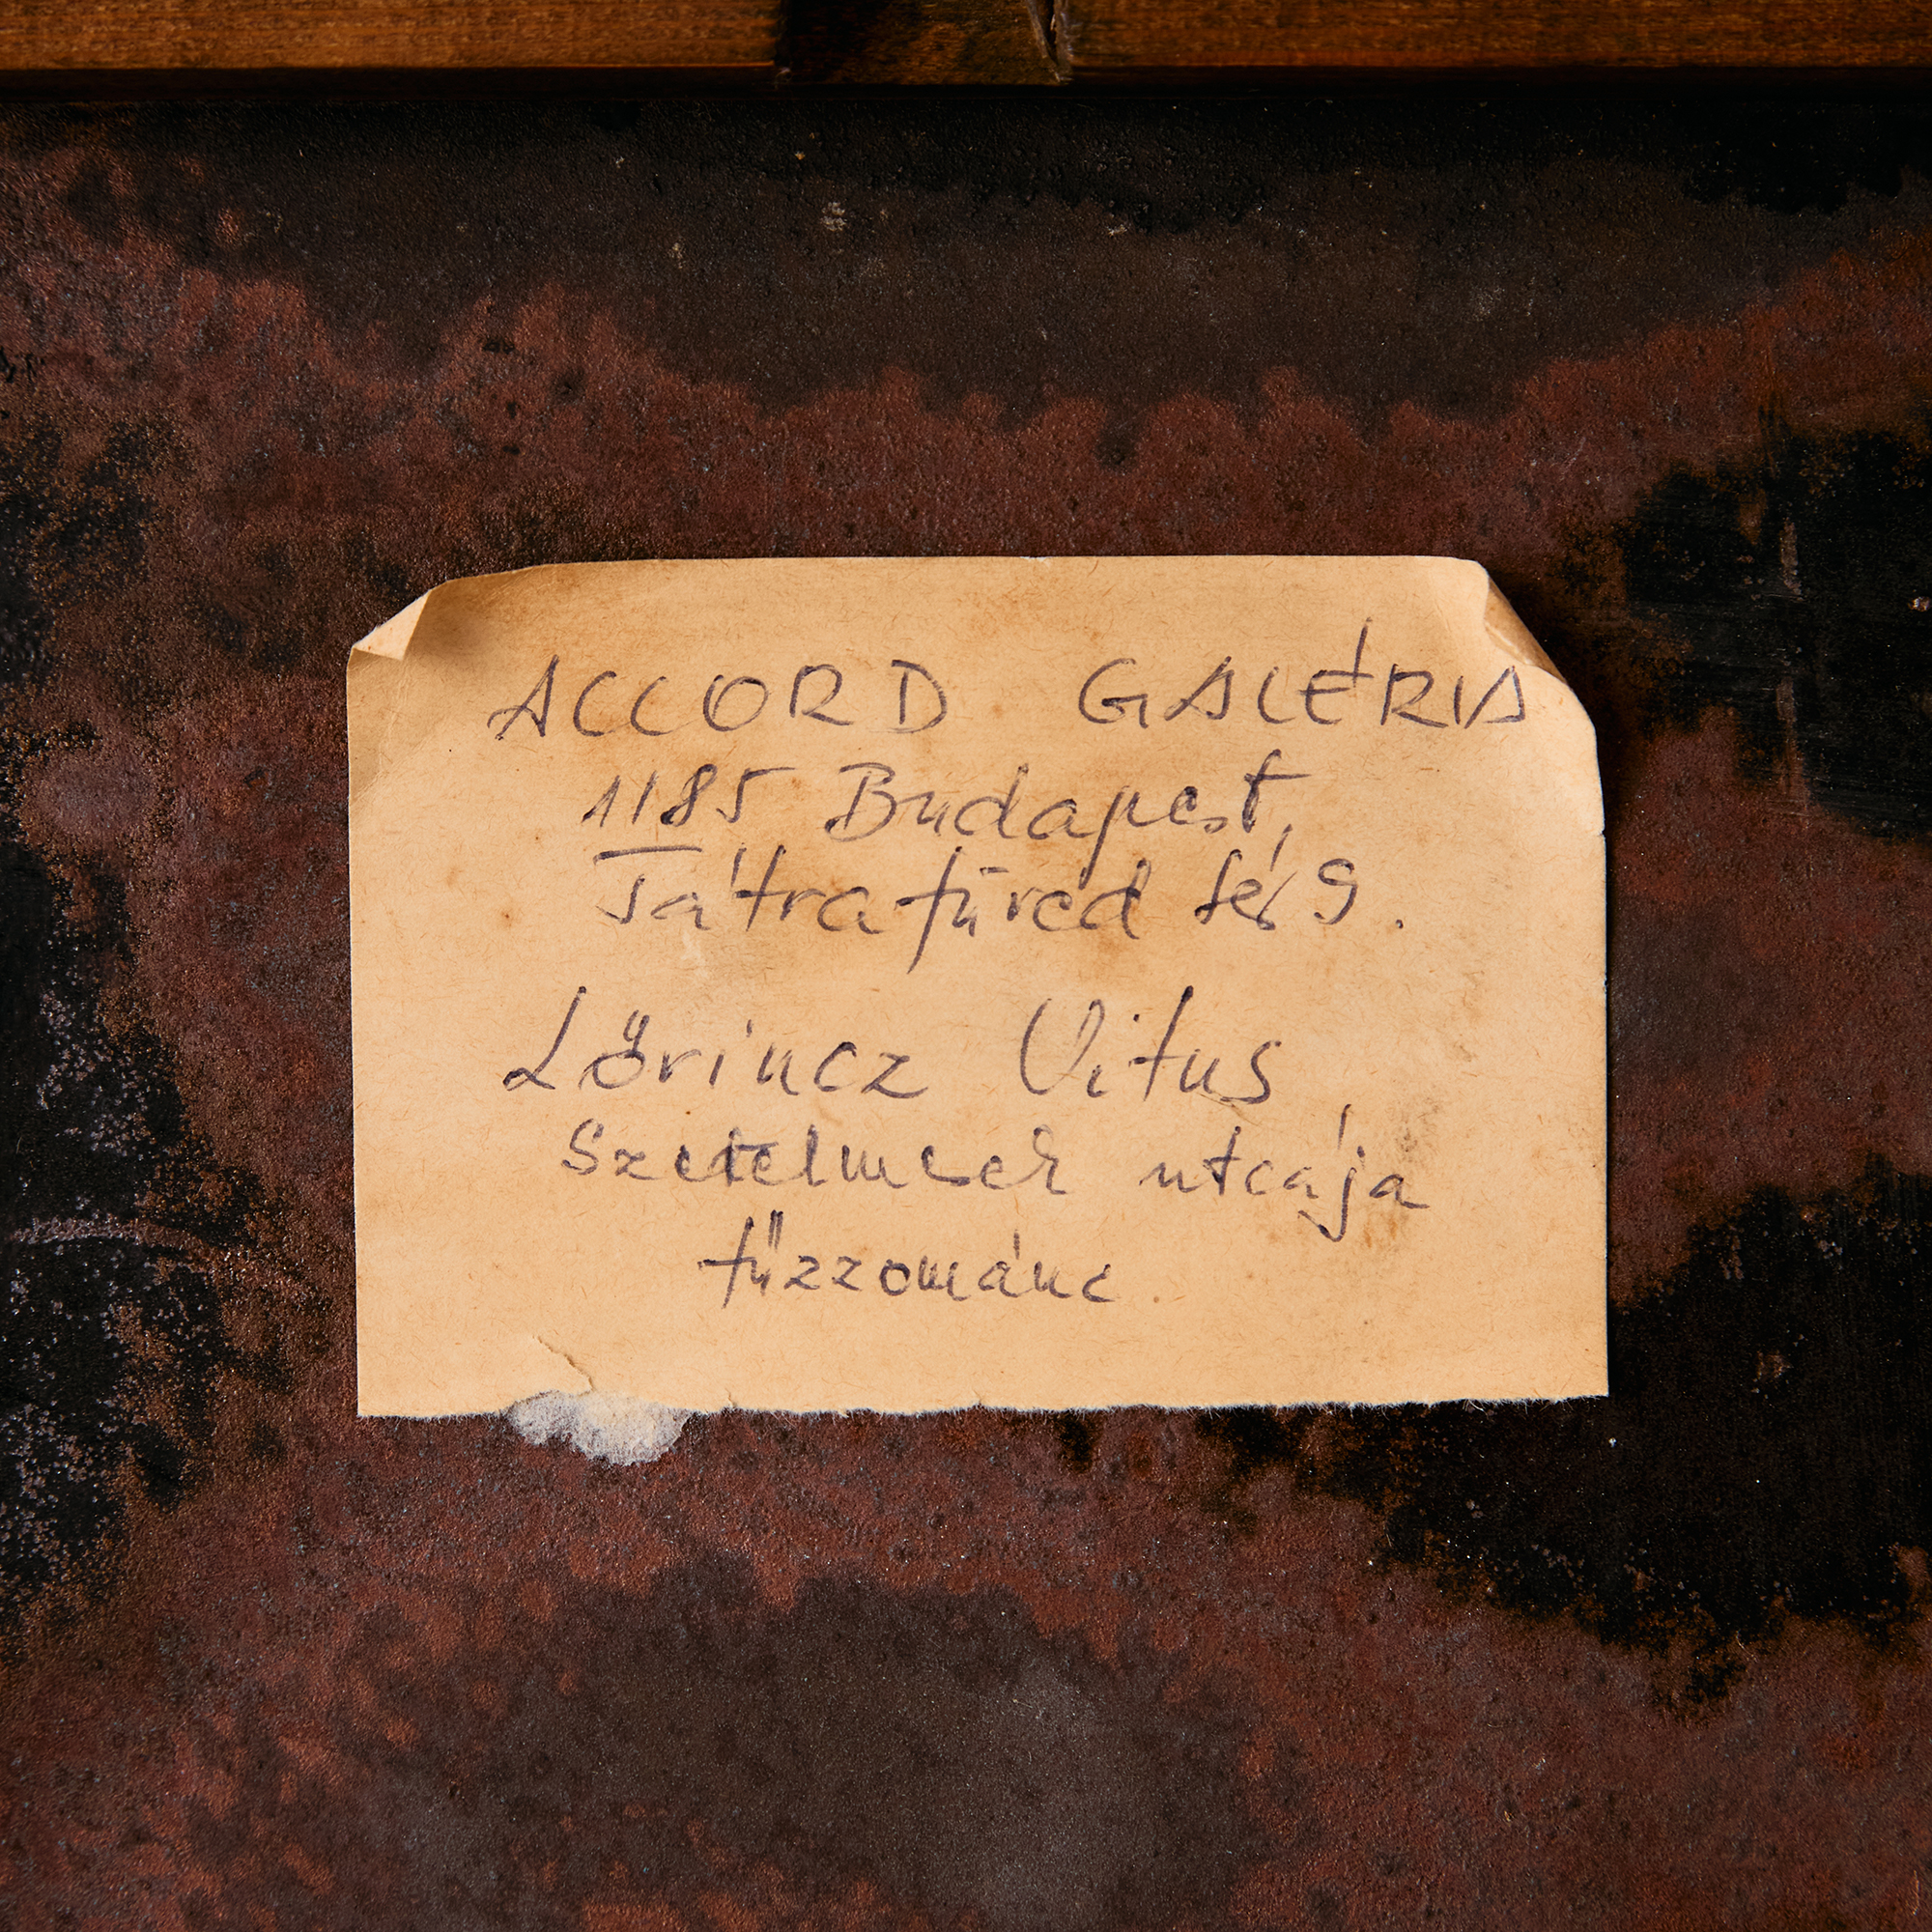 ACCORD GALÉRIA
1185 Budapest,
Tátrafüred tér 9.
Lőrincz Vitus
Szerelmesek utcája
tűzzománc.